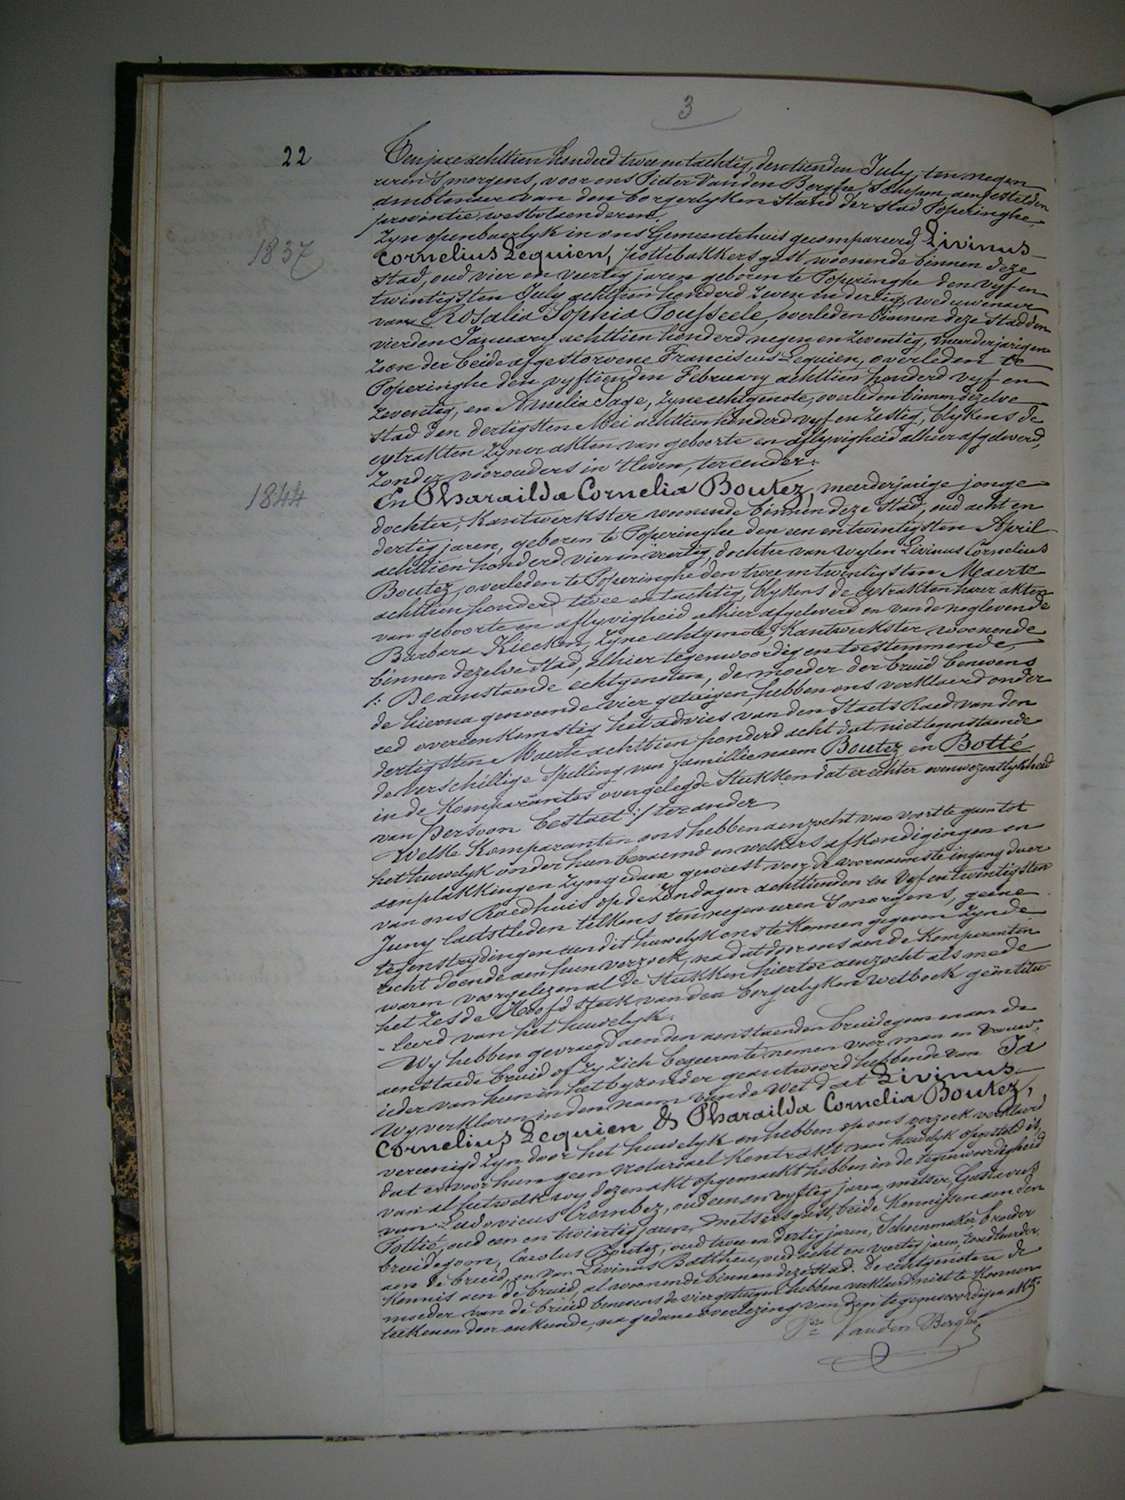 3
22
Ten jare achttien honderd twee en tachtig, den tienden July, ten negen
uren 's morgens, voor ons Pieter Vanden Berghe, Schepen aengestelden
ambtenaer van den borgerlyken stand der stad Poperinghe,
provintie westvlaenderen,
Zyn openbaerlyk in ons Gemeentehuis gecompareerd Livinus
1837
Cornelius Lequien, pottebakkersgast, woonende binnen deze
stad, oud vier en veertig jaren geboren te Poperinghe den vyf en
twintigsten July achttien honderd zeven en dertig, weduwenaer
van Rosalia Sophia Pousseele, overleden binnen deze stad den
vierden January achttien honderd negen en zeventig, meerderjarigen
zoon der beide afgestorvene Franciscus Lequien, overleden te
Poperinghe den vyftienden February achttien honderd vyf en
zeventig, en Amelia Sage, zyne echtgenote, overleden binnen dezelve
stad den dertigsten Mei achttien honderd vyf en zestig, blykens de
extrakten zyner akten van geboorte en aflyvigheid alhier afgeleverd,
zonder voorouders in 't leven, ter eender;
1844
En Pharaïlda Cornelia Boutez, meerderjarige jonge
dochter, Kantwerkster woonende binnen deze stad, oud acht en
dertig jaren, geboren te Poperinghe den een en twintigsten April
achttien honderd vier en veertig, dochter van wylen Livinus Cornelius
Boutez, overleden te Poperinghe den twee en twintigsten Maerte
achttien honderd twee en tachtig, blykens de extrakten harer akten
van geboorte en aflyvigheid alhier afgeleverd en van de noglevende
Barbara Kliecken, zyne echtgenote, Kantwerkster woonende
binnen dezelve stad, alhier tegenwoordig en toestemmende,
/: De aenstaende echtgenoten, de moeder der bruid benevens
de hierna genoemde vier getuigen, hebben ons verklaerd onder
eed overeenkomstig het advies van den Staets Raed van den
dertigsten Maerte achttien honderd acht dat niettegenstaende
de verschillige spelling van familienaem Boutez en Botté
in de Komparantes overgelegde stukken dat er echter eenwezentlykheid
van persoon bestaet :/ ter ander
Welke Komparanten ons hebben aenzocht van voort te gaen tot
het huwelyk onder hun beraemd en welkers afkondigingen en
aenplakkingen zyn gedaen geweest voor de voornaemste ingang deur
van ons Raedhuis op de zondagen achttienden en vyf en twintigsten
Juny laetstleden telkens ten negen uren 's morgens, geene
tegenstrydingen aen dit huwelyk ons te kennen gegeven zynde
recht doende aen hun verzoek, na dat door ons aen de Komparanten
waren voorgelezen al de stukken hiertoe aenzocht als mede
het zesde Hoofdstuk van den borgerlyken wetboek geïntitu-
-leerd van het huwelyk.
Wy hebben gevraegd aen den aenstaenden bruidegom en aen de
aenstaende bruid of zy zich begeeren te nemen voor man en vrouw;
ieder van hun in het byzonder geantwoord hebbende van Ja
Wy verklaren in den naem van de Wet dat Livinus
Cornelius Lequien & Pharaïlda Cornelia Boutez,
vereenigd zyn door het huwelyk en hebben op ons verzoek verklaerd
dat er voor hun geen notarieel Kontrakt van huwelyk opgesteld is,
van al hetwelk wy dezen akt opgemaekt hebben in de tegenwoordigheid
van Ludovicus Crombez, oud een en vyftig jaren, metser, Gustavus
Pottié, oud een en twintig jaren, metsersgast, beide Kennissen aen den
bruidegom, Carolus Boutez, oud twee en dertig jaren, Schoenmaker, broeder
aen de bruid, en van Livinus Battheu, oud acht en veertig jaren,
Kennis aen de bruid, al woonende binnen deze stad. De echtgenoten de
moeder van de bruid benevens de vier getuigen hebben verklaerd niet te konnen
teekenen door onkunde, na gedane overlezing van den tegenwoordigen akte.
Pre Vanden Berghe